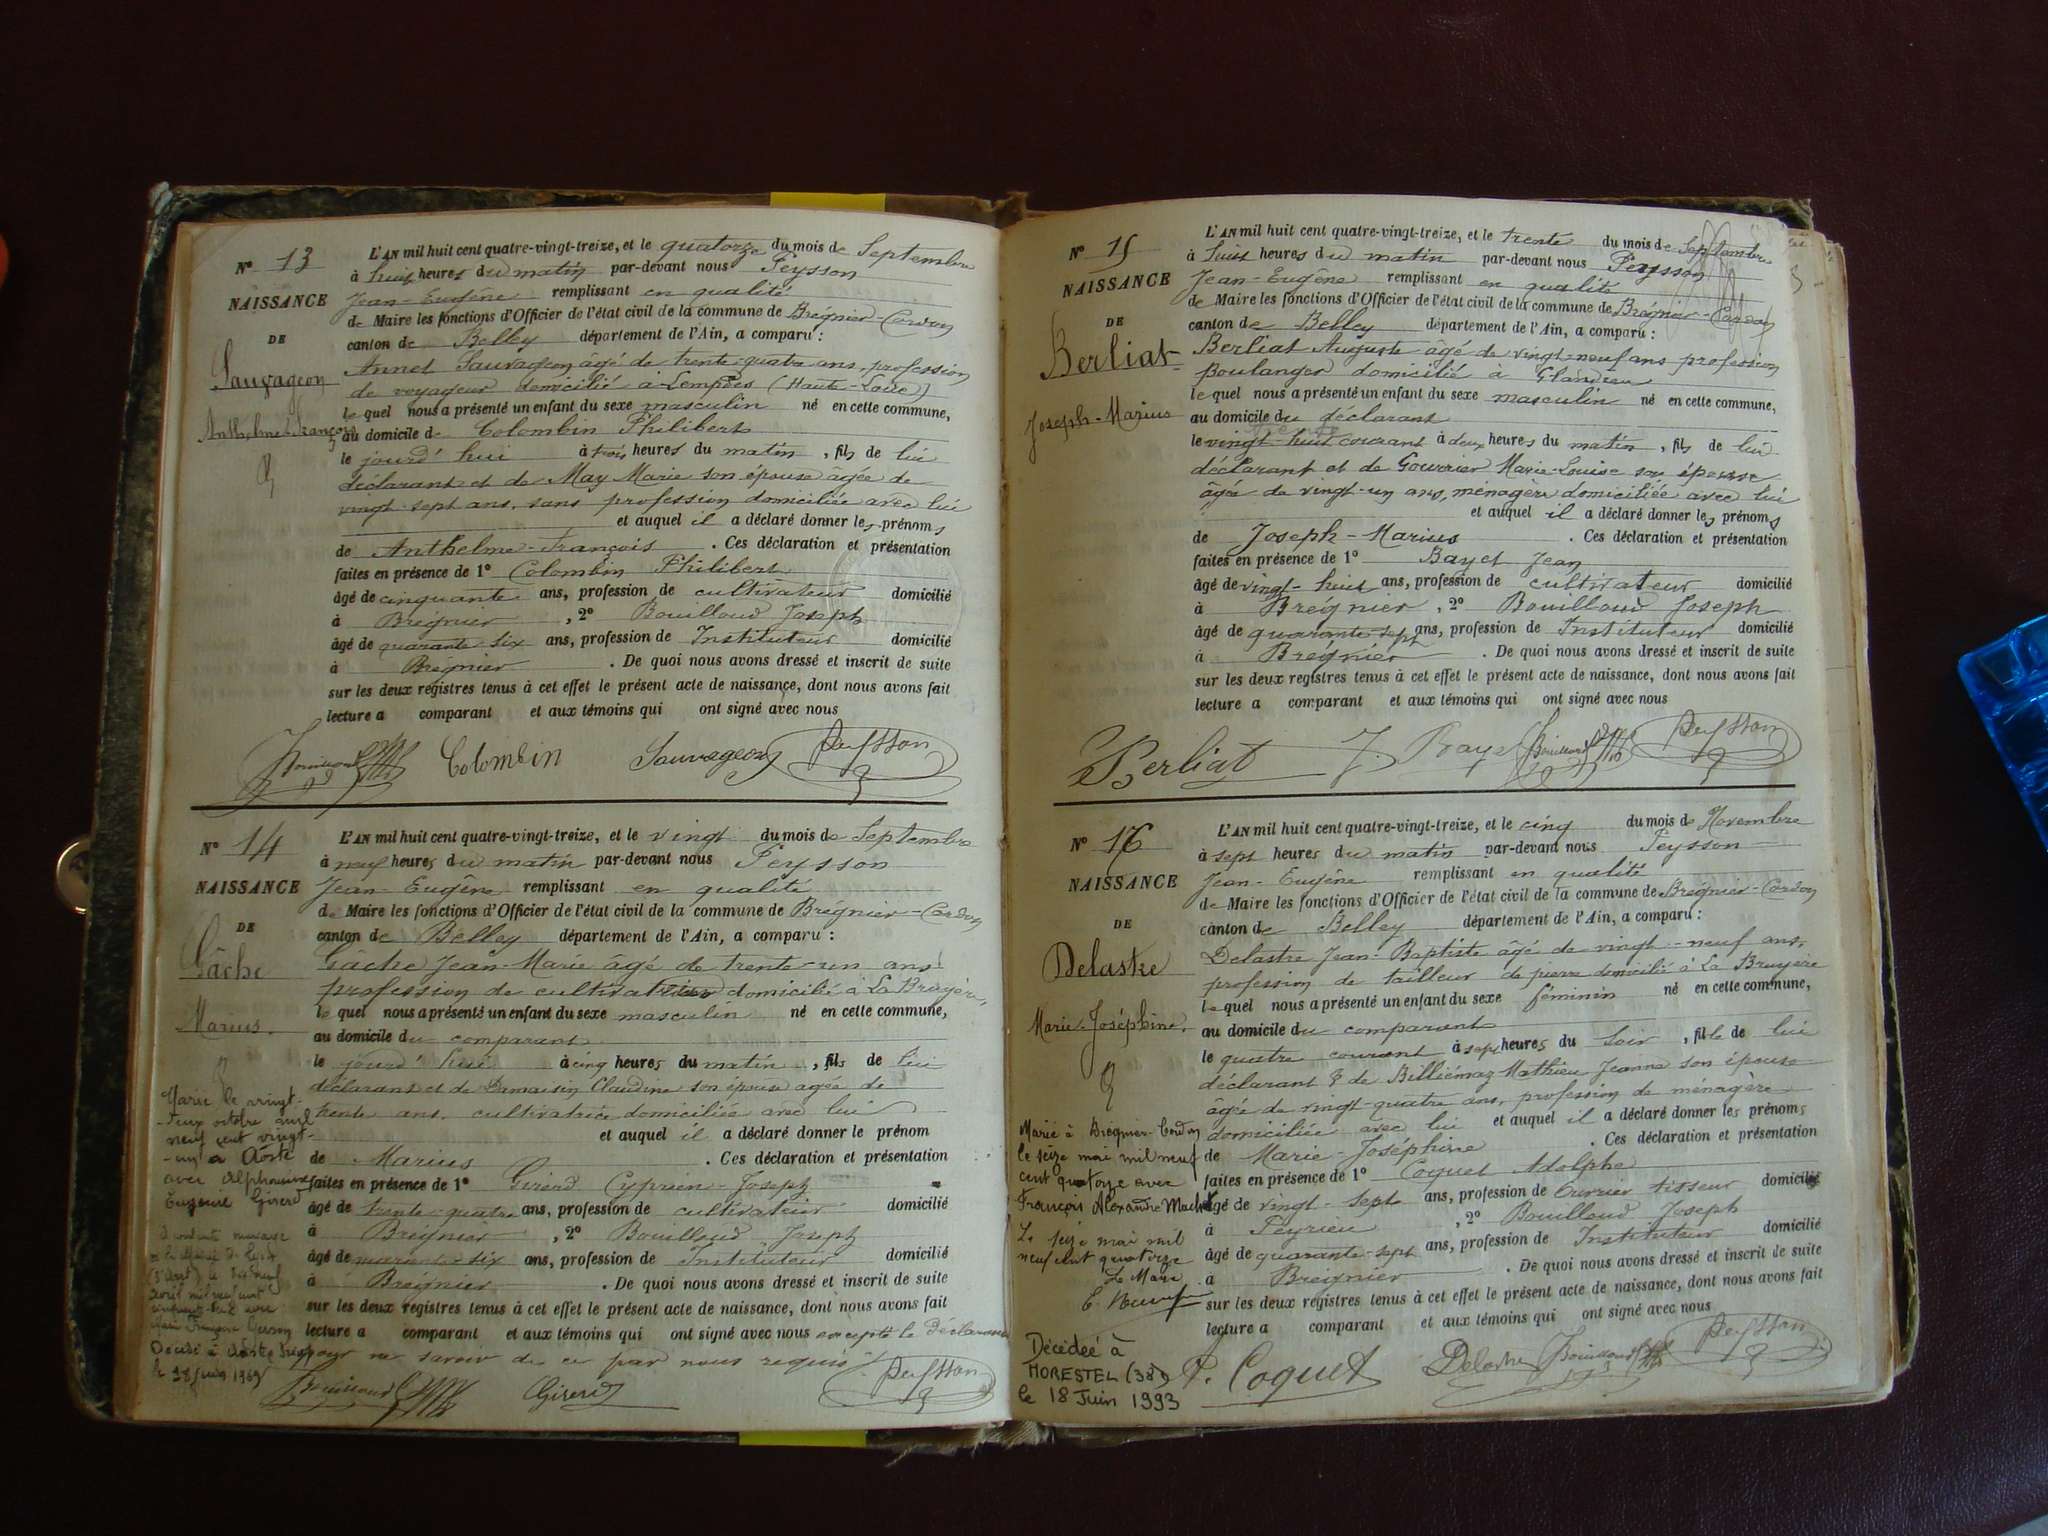 N° 13
NAISSANCE
DE
Sauvageon
Anthelme-François
L'AN mil huit cent quatre-vingt-treize, et le quatorze du mois de Septembre
à huit heures du matin par-devant nous Peysson
Jean-Eugène remplissant en qualité
de Maire les fonctions d'Officier de l'état civil de la commune de Brégnier-Cordon
canton de Belley département de l'Ain, a comparu :
Annet Sauvageon âgé de trente-quatre ans, profession
de voyageur domicilié à Lempdes (Haute-Loire)
lequel nous a présenté un enfant du sexe masculin né en cette commune,
au domicile de Colombin Philibert
le jourd'hui à trois heures du matin, fils de lui
déclarant et de May Marie son épouse âgée de
vingt-sept ans, sans profession domiciliée avec lui
et auquel il a déclaré donner les prénoms
de Anthelme-François. Ces déclaration et présentation
faites en présence de 1° Colombin Philibert
âgé de cinquante ans, profession de cultivateur domicilié
à Brégnier, 2° Bouilloud Joseph
âgé de quarante-six ans, profession de Instituteur domicilié
à Brégnier. De quoi nous avons dressé et inscrit de suite
sur les deux registres tenus à cet effet le présent acte de naissance, dont nous avons fait
lecture a comparant et aux témoins qui ont signé avec nous
Bouilloud Colombin Sauvageon Peysson
N° 14
NAISSANCE
DE
Gâche
Marius.
L'AN mil huit cent quatre-vingt-treize, et le vingt du mois de Septembre
à neuf heures du matin par-devant nous Peysson
Jean-Eugène remplissant en qualité
de Maire les fonctions d'Officier de l'état civil de la commune de Brégnier-Cordon
canton de Belley département de l'Ain, a comparu :
Gache Jean-Marie âgé de trente-un ans
profession de cultivateur domicilié à La Bruyère,
lequel nous a présenté un enfant du sexe masculin né en cette commune,
au domicile du comparant
le jourd'hui à cinq heures du matin, fils de lui
déclarant et de Damaisin Claudine son épouse agée de
trente ans, cultivatrice domiciliée avec lui
et auquel il a déclaré donner le prénom
de Marius. Ces déclaration et présentation
faites en présence de 1° Girerd Cyprien-Joseph
âgé de trente-quatre ans, profession de cultivateur domicilié
à Brégnier, 2° Bouilloud Joseph
âgé de quarante-six ans, profession de Instituteur domicilié
à Brégnier. De quoi nous avons dressé et inscrit de suite
sur les deux registres tenus à cet effet le présent acte de naissance, dont nous avons fait
lecture a comparant et aux témoins qui ont signé avec nous excepté le déclarant
pour ne savoir de ce par nous requis.
Bouilloud Girerd Peysson
Marié le vingt-
-deux octobre mil
neuf cent vingt-
-un à Aoste
avec Alphonsine
Eugénie Girerd
mariage
Décédé à Aoste
le 28 1969
N° 15
NAISSANCE
DE
Berliat
Joseph-Marius
L'AN mil huit cent quatre-vingt-treize, et le trente du mois de Septembre
à huit heures du matin par-devant nous Peysson
Jean-Eugène remplissant en qualité
de Maire les fonctions d'Officier de l'état civil de la commune de Brégnier-Cordon
canton de Belley département de l'Ain, a comparu :
Berliat Auguste âgé de vingt-neuf ans profession
Boulanger domicilié à Glandieu
lequel nous a présenté un enfant du sexe masculin né en cette commune,
au domicile du déclarant
le vingt-huit courant à deux heures du matin, fils de lui
déclarant et de Gourrier Marie-Louise son épouse
âgée de vingt-un ans, ménagère domiciliée avec lui
et auquel il a déclaré donner les prénoms
de Joseph-Marius. Ces déclaration et présentation
faites en présence de 1° Bayet Jean
âgé de vingt-huit ans, profession de cultivateur domicilié
à Brégnier, 2° Bouilloud Joseph
âgé de quarante-sept ans, profession de Instituteur domicilié
à Brégnier. De quoi nous avons dressé et inscrit de suite
sur les deux registres tenus à cet effet le présent acte de naissance, dont nous avons fait
lecture a comparant et aux témoins qui ont signé avec nous
Berliat J. Bayet Bouilloud Peysson
N° 16
NAISSANCE
DE
Delastre
Marie-Joséphine.
L'AN mil huit cent quatre-vingt-treize, et le cinq du mois de Novembre
à sept heures du matin par-devant nous Peysson
Jean-Eugène remplissant en qualité
de Maire les fonctions d'Officier de l'état civil de la commune de Brégnier-Cordon
canton de Belley département de l'Ain, a comparu :
Delastre Jean-Baptiste âgé de vingt-neuf ans,
profession de tailleur de pierre domicilié à La Bruyère
lequel nous a présenté un enfant du sexe féminin né en cette commune,
au domicile du comparant
le quatre courant à sept heures du soir, fille de lui
déclarant & de Billiémaz-Mathieu Jeanne son épouse
âgée de vingt-quatre ans, profession de ménagère
domiciliée avec lui et auquel il a déclaré donner les prénoms
de Marie-Joséphine. Ces déclaration et présentation
faites en présence de 1° Coquet Adolphe
âgé de vingt-sept ans, profession de Ouvrier tisseur domicilié
à Peyrieu, 2° Bouilloud Joseph
âgé de quarante-sept ans, profession de Instituteur domicilié
à Brégnier. De quoi nous avons dressé et inscrit de suite
sur les deux registres tenus à cet effet le présent acte de naissance, dont nous avons fait
lecture a comparant et aux témoins qui ont signé avec nous
Coquet Delastre Bouilloud Peysson
Marié à Brégnier-Cordon
le seize mai mil neuf
cent quatorze avec
François Alexandre
Le seize mai mil
neuf cent quatorze
Le Maire
Décédée à
MORESTEL (38)
le 18 Juin 1993